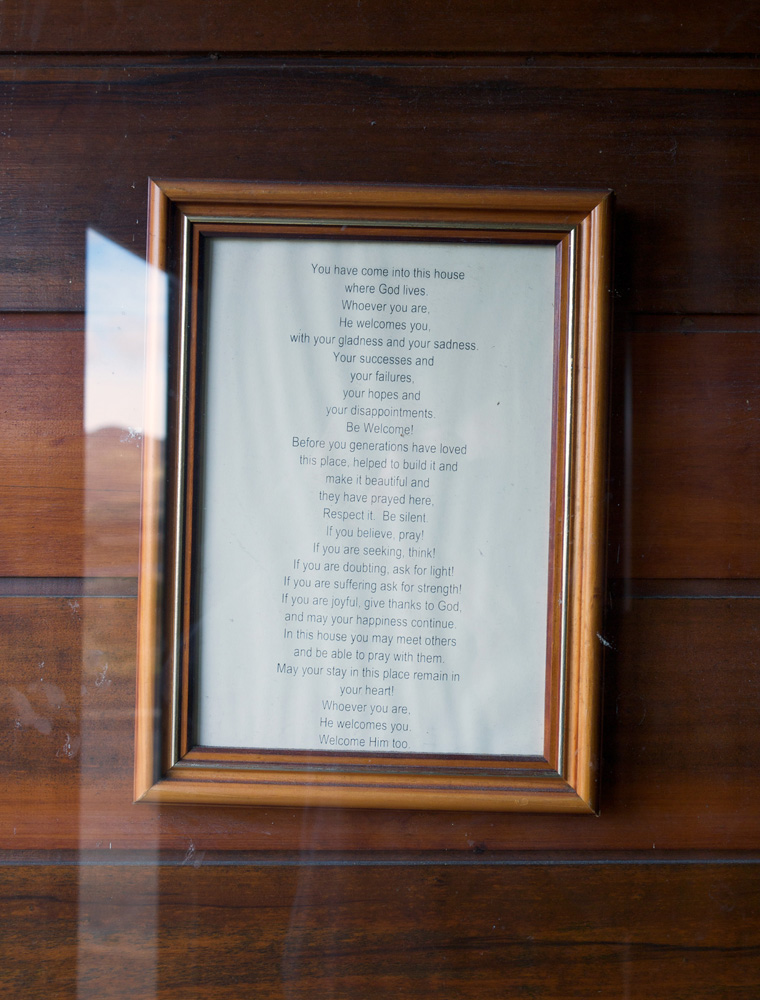 You have come into this house
where God lives.
Whoever you are,
He welcomes you,
with your gladness and your sadness.
Your successes and
your failures,
your hopes and
your disappointments.
Be Welcome!
Before you generations have loved
this place, helped to build it and
make it beautiful and
they have prayed here,
Respect it. Be silent.
If you believe, pray!
If you are seeking, think!
If you are doubting, ask for light!
If you are suffering ask for strength!
If you are joyful, give thanks to God,
and may your happiness continue.
In this house you may meet others
and be able to pray with them,
May your stay in this place remain in
your heart!
Whoever you are,
He welcomes you.
Welcome Him too.